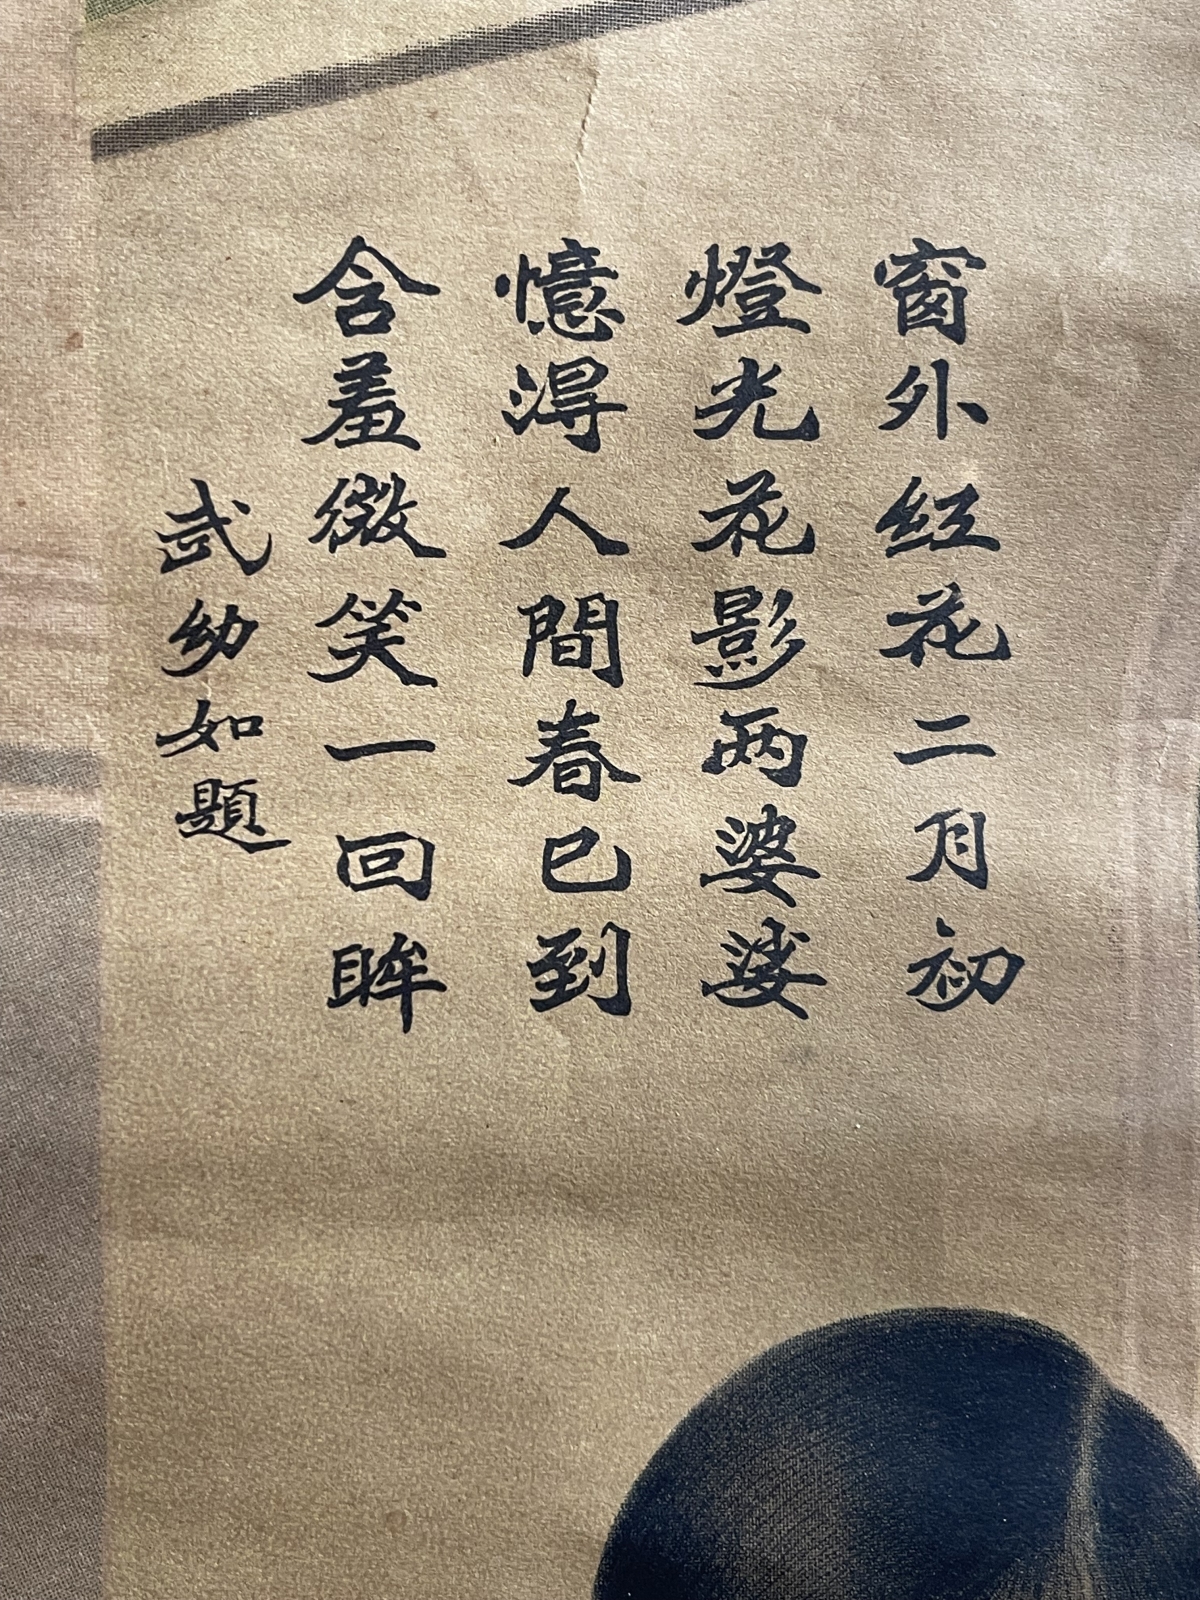 窗外紅花二月初
燈光花影兩婆娑
憶得人間春已到
含羞微笑一回眸
武幼如題